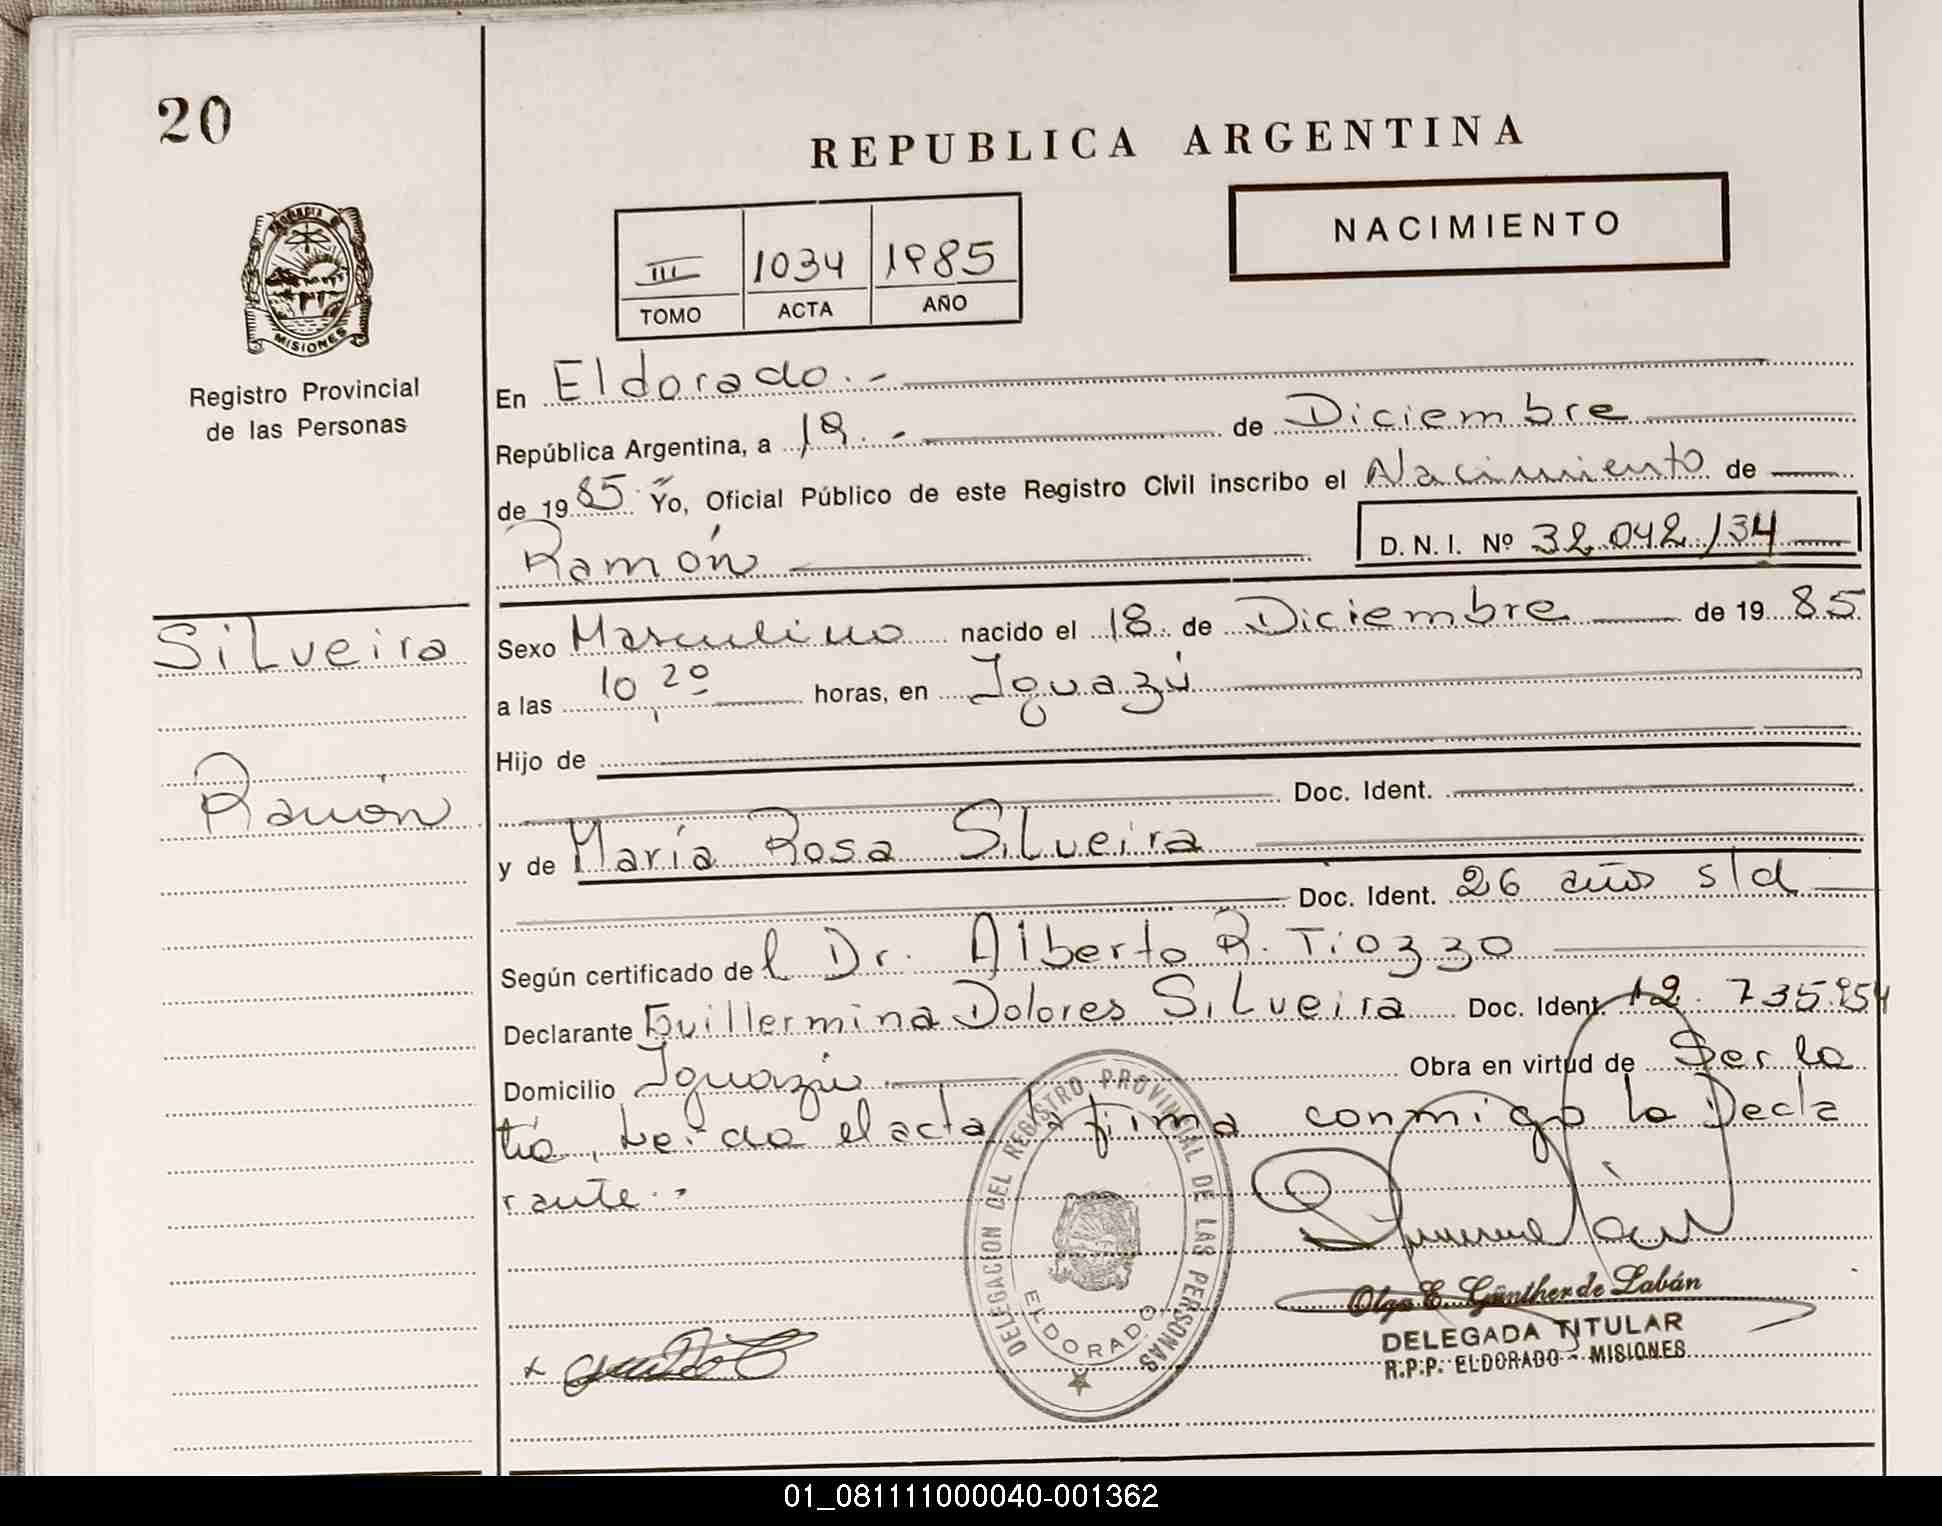 20
REPUBLICA ARGENTINA
NACIMIENTO
III 1034 1985
TOMO ACTA AÑO
MISIONES
Registro Provincial
de las Personas
En Eldorado.-
República Argentina, a 19.- de Diciembre
de 1985. Yo, Oficial Público de este Registro Civil inscribo el Nacimiento de
Ramón D. N. I. Nº 32.042.134
Silveira
Ramón
Sexo Masculino nacido el 18 de Diciembre de 1985
a las 10,20 horas, en Iguazú
Hijo de
Doc. Ident.
y de María Rosa Silveira
Doc. Ident. 26 años s/d
Según certificado del Dr. Alberto R. Tiozzo
Declarante Guillermina Dolores Silveira Doc. Ident. 12.735.954
Domicilio Iguazú.- Obra en virtud de Ser la
tía, Leida el acta la firma conmigo la Decla
rante.-
DELEGACION DEL REGISTRO PROVINCIAL DE LAS PERSONAS
ELDORADO
Olga E. Günther de Labán
DELEGADA TITULAR
R.P.P. ELDORADO - MISIONES
01_081111000040-001362